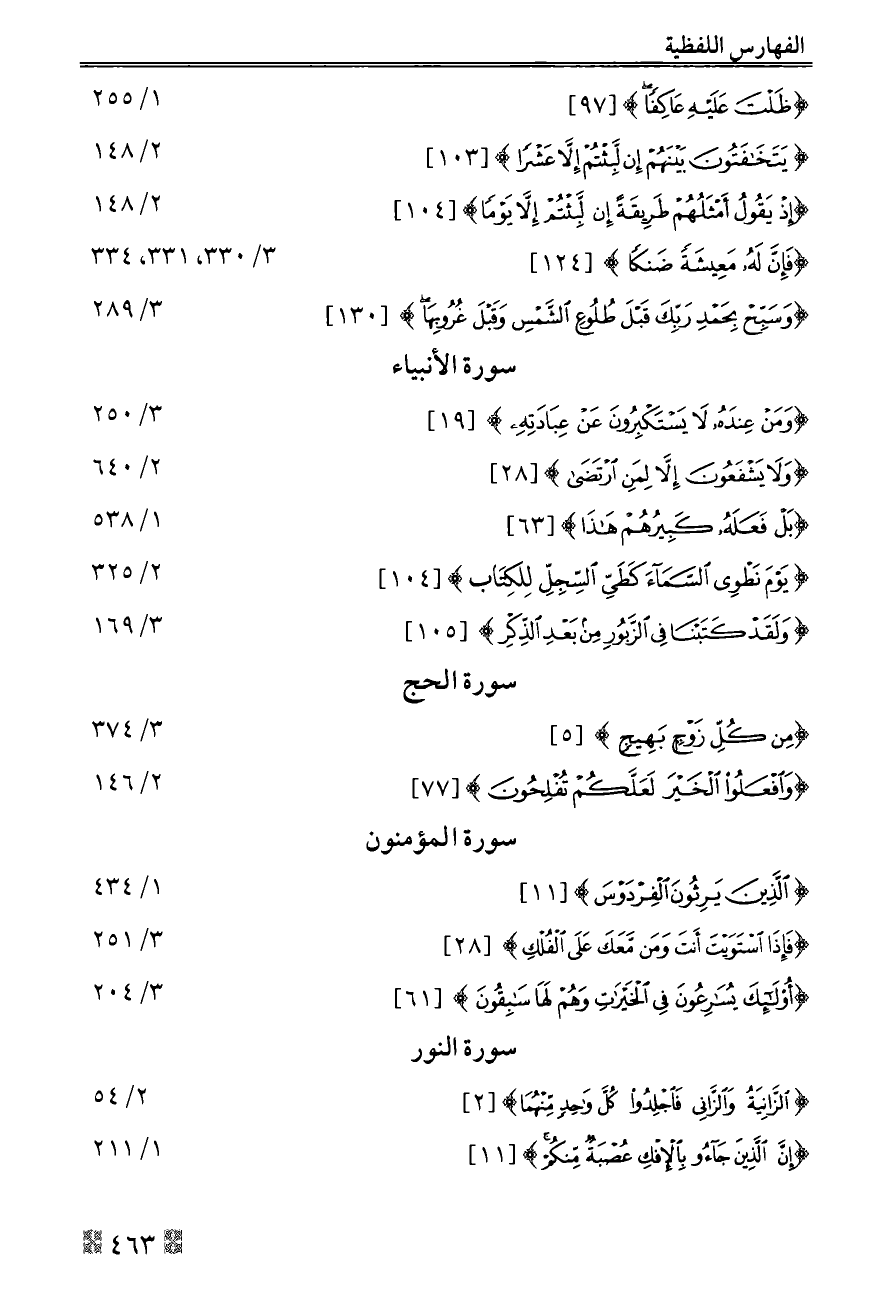 الفهارس اللفظية
﴿ظَلْتَ عَلَيْهِ عَاكِفًاۖ﴾ [٩٧] ١/ ٢٥٥
﴿يَتَخَٰفَتُونَ بَيْنَهُمْ إِن لَّبِثْتُمْ إِلَّا عَشْرًا﴾ [١٠٣] ٢/ ١٤٨
﴿إِذْ يَقُولُ أَمْثَلُهُمْ طَرِيقَةً إِن لَّبِثْتُمْ إِلَّا يَوْمًا﴾ [١٠٤] ٢/ ١٤٨
﴿فَإِنَّ لَهُۥ مَعِيشَةً ضَنكًا﴾ [١٢٤] ٣/ ٣٣٠، ٣٣١، ٣٣٤
﴿وَسَبِّحْ بِحَمْدِ رَبِّكَ قَبْلَ طُلُوعِ ٱلشَّمْسِ وَقَبْلَ غُرُوبِهَاۖ﴾ [١٣٠] ٣/ ٢٨٩
سورة الأنبياء
﴿وَمَنْ عِندَهُۥ لَا يَسْتَكْبِرُونَ عَنْ عِبَادَتِهِۦ﴾ [١٩] ٣/ ٢٥٠
﴿وَلَا يَشْفَعُونَ إِلَّا لِمَنِ ٱرْتَضَىٰ﴾ [٢٨] ٢/ ٦٤٠
﴿بَلْ فَعَلَهُۥ كَبِيرُهُمْ هَٰذَا﴾ [٦٣] ١/ ٥٣٨
﴿يَوْمَ نَطْوِى ٱلسَّمَآءَ كَطَىِّ ٱلسِّجِلِّ لِلْكِتَابِ﴾ [١٠٤] ٢/ ٣٢٥
﴿وَلَقَدْ كَتَبْنَا فِى ٱلزَّبُورِ مِنۢ بَعْدِ ٱلذِّكْرِ﴾ [١٠٥] ٣/ ١٦٩
سورة الحج
﴿مِن كُلِّ زَوْجٍ بَهِيجٍ﴾ [٥] ٣/ ٣٧٤
﴿وَٱفْعَلُوا۟ ٱلْخَيْرَ لَعَلَّكُمْ تُفْلِحُونَ﴾ [٧٧] ٢/ ١٤٦
سورة المؤمنون
﴿ٱلَّذِينَ يَرِثُونَ ٱلْفِرْدَوْسَ﴾ [١١] ١/ ٤٣٤
﴿فَإِذَا ٱسْتَوَيْتَ أَنتَ وَمَن مَّعَكَ عَلَى ٱلْفُلْكِ﴾ [٢٨] ٣/ ٢٥١
﴿أُو۟لَٰٓئِكَ يُسَٰرِعُونَ فِى ٱلْخَيْرَٰتِ وَهُمْ لَهَا سَٰبِقُونَ﴾ [٦١] ٣/ ٢٠٤
سورة النور
﴿ٱلزَّانِيَةُ وَٱلزَّانِى فَٱجْلِدُوا۟ كُلَّ وَٰحِدٍ مِّنْهُمَا﴾ [٢] ٢/ ٥٤
﴿إِنَّ ٱلَّذِينَ جَآءُو بِٱلْإِفْكِ عُصْبَةٌ مِّنكُمْۚ﴾ [١١] ١/ ٢١١
٤٦٣